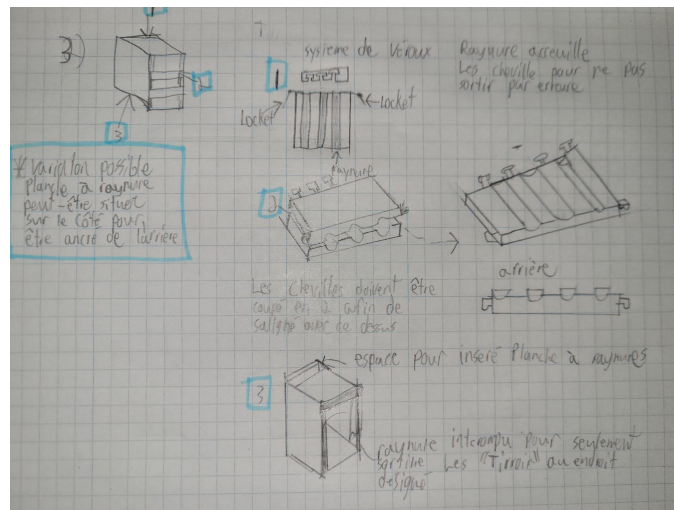 3)
1
2
3
* variation possible
Planche à raynure
peut-être situer
sur le côté pour
être ancré de l'arrière
1
système de Véroux
Locket
Locket
raynure
Raynure acceuille
Les cheville pour ne pas
sortir par erreure
2
Les chevilles doivent être
coupé en 2 afin de
de dessus
arrière
3
espace pour inseré Planche à raynures
raynure intérompu pour seulement
sortire Les "Tirroir" au endroit
désigné